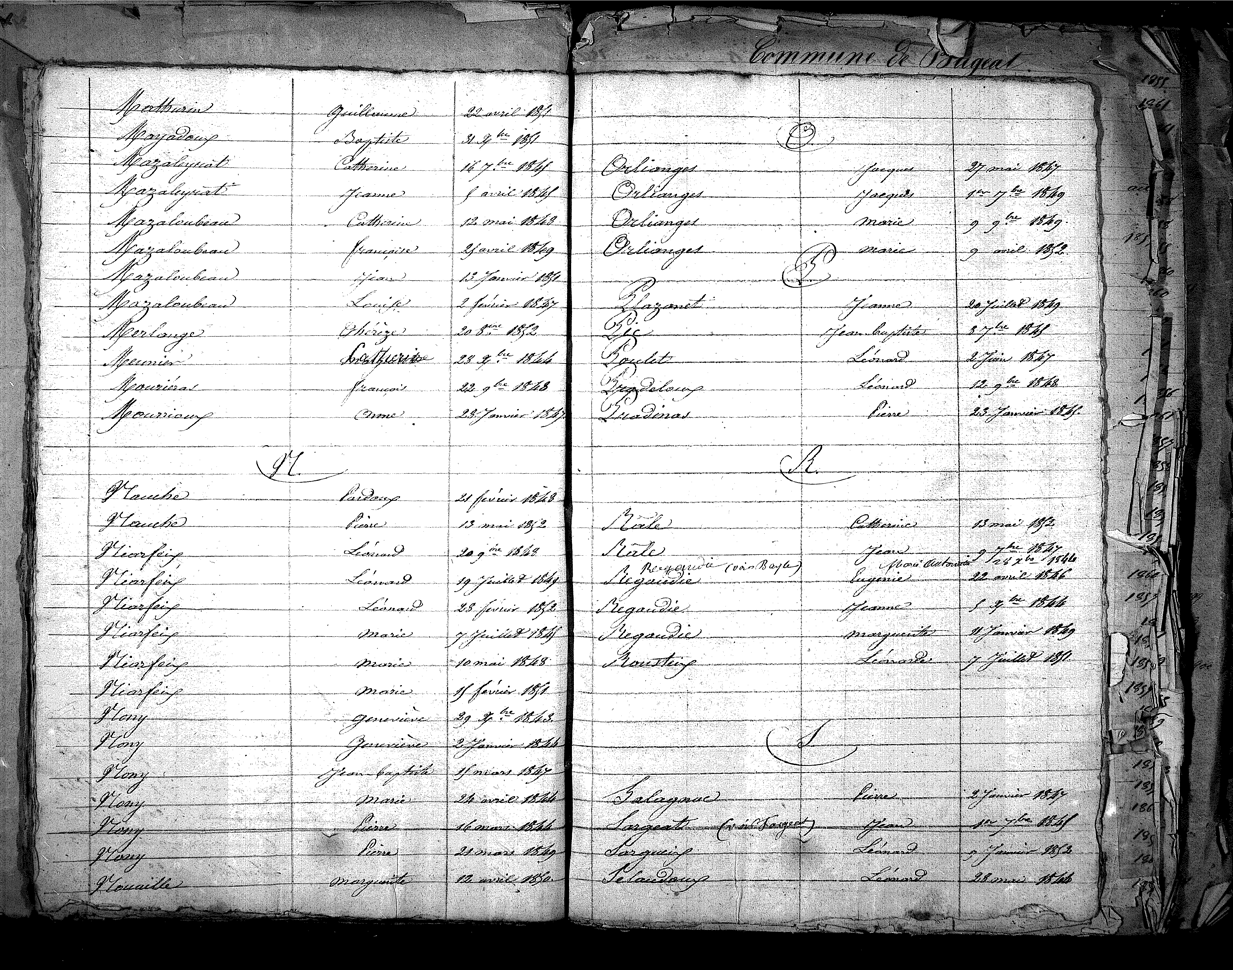 Commune de Bugeat
Mathurin Guillaume 22 avril 1851
Mayadoux Baptiste 21 Xbre 1851
Mazaleyrat Catherine 16 7bre 1845
Mazaleyrat Jeanne 5 avril 1845
Mazaloubeau Catherine 12 mai 1843
Mazaloubeau françoise 25 avril 1849
Mazaloubeau Jean 13 Janvier 1851
Mazaloubeau Louise 2 février 1847
Merlange Thérèze 20 8bre 1852
Meunier 28 Xbre 1844
Mouriéras françois 22 9bre 1848
Mournioux Anne 28 Janvier 1847
N
Nauche Pardoux 21 février 1843
Nauche Pierre 13 mai 1852
Niarfeix Léonard 20 9bre 1843
Niarfeix Léonard 19 Juillet 1849
Niarfeix Léonard 28 février 1852
Niarfeix marie 7 Juillet 1845
Niarfeix marie 10 mai 1848
Niarfeix marie 15 février 1851
Nony Geneviève 29 Xbre 1843
Nony Geneviève 2 Janvier 1844
Nony Jean baptiste 15 mars 1847
Nony Marie 24 avril 1844
Nony Pierre 16 mars 1844
Nony Pierre 21 mars 1849
Nouaille marguerite 12 avril 1850
O
Orlianges Jacques 27 mai 1847
Orlianges Jacques 1er 7bre 1849
Orlianges marie 9 9bre 1849
Orlianges marie 9 avril 1852
P
Plazanet Jeanne 20 Juillet 1849
Pic Jean baptiste 8 7bre 1845
Poulet Léonard 2 Juin 1847
Pradeloux Léonard 12 9bre 1848
Pradinas Pierre 23 Janvier 1845
R
Râle Catherine 13 mai 1852
Râle Jean 9 7bre 1847
(voir Bayle) Marie Antoinette 28 Xbre 1844
Regaudie Eugénie 22 avril 1846
Regaudie Jeanne 5 Xbre 1844
Regaudie marguerite 11 Janvier 1849
Rousteix Léonarde 7 Juillet 1851
S
Salagnac Pierre 2 Janvier 1847
Sargeat (voir Fargeat) Jean 1er 7bre 1845
Sargueix Léonard 9 Janvier 1852
Selaudoux Léonard 28 mai 1844